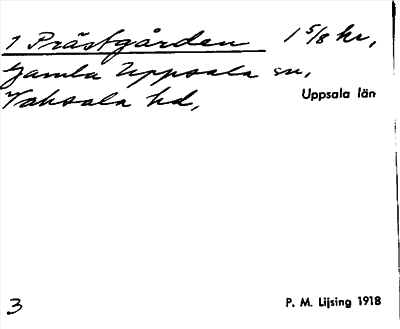 1 Prästgården 1 5/8 kr,
Gamla Uppsala sn,
Vaksala hd, Uppsala län
3 P. M. Lijsing 1918